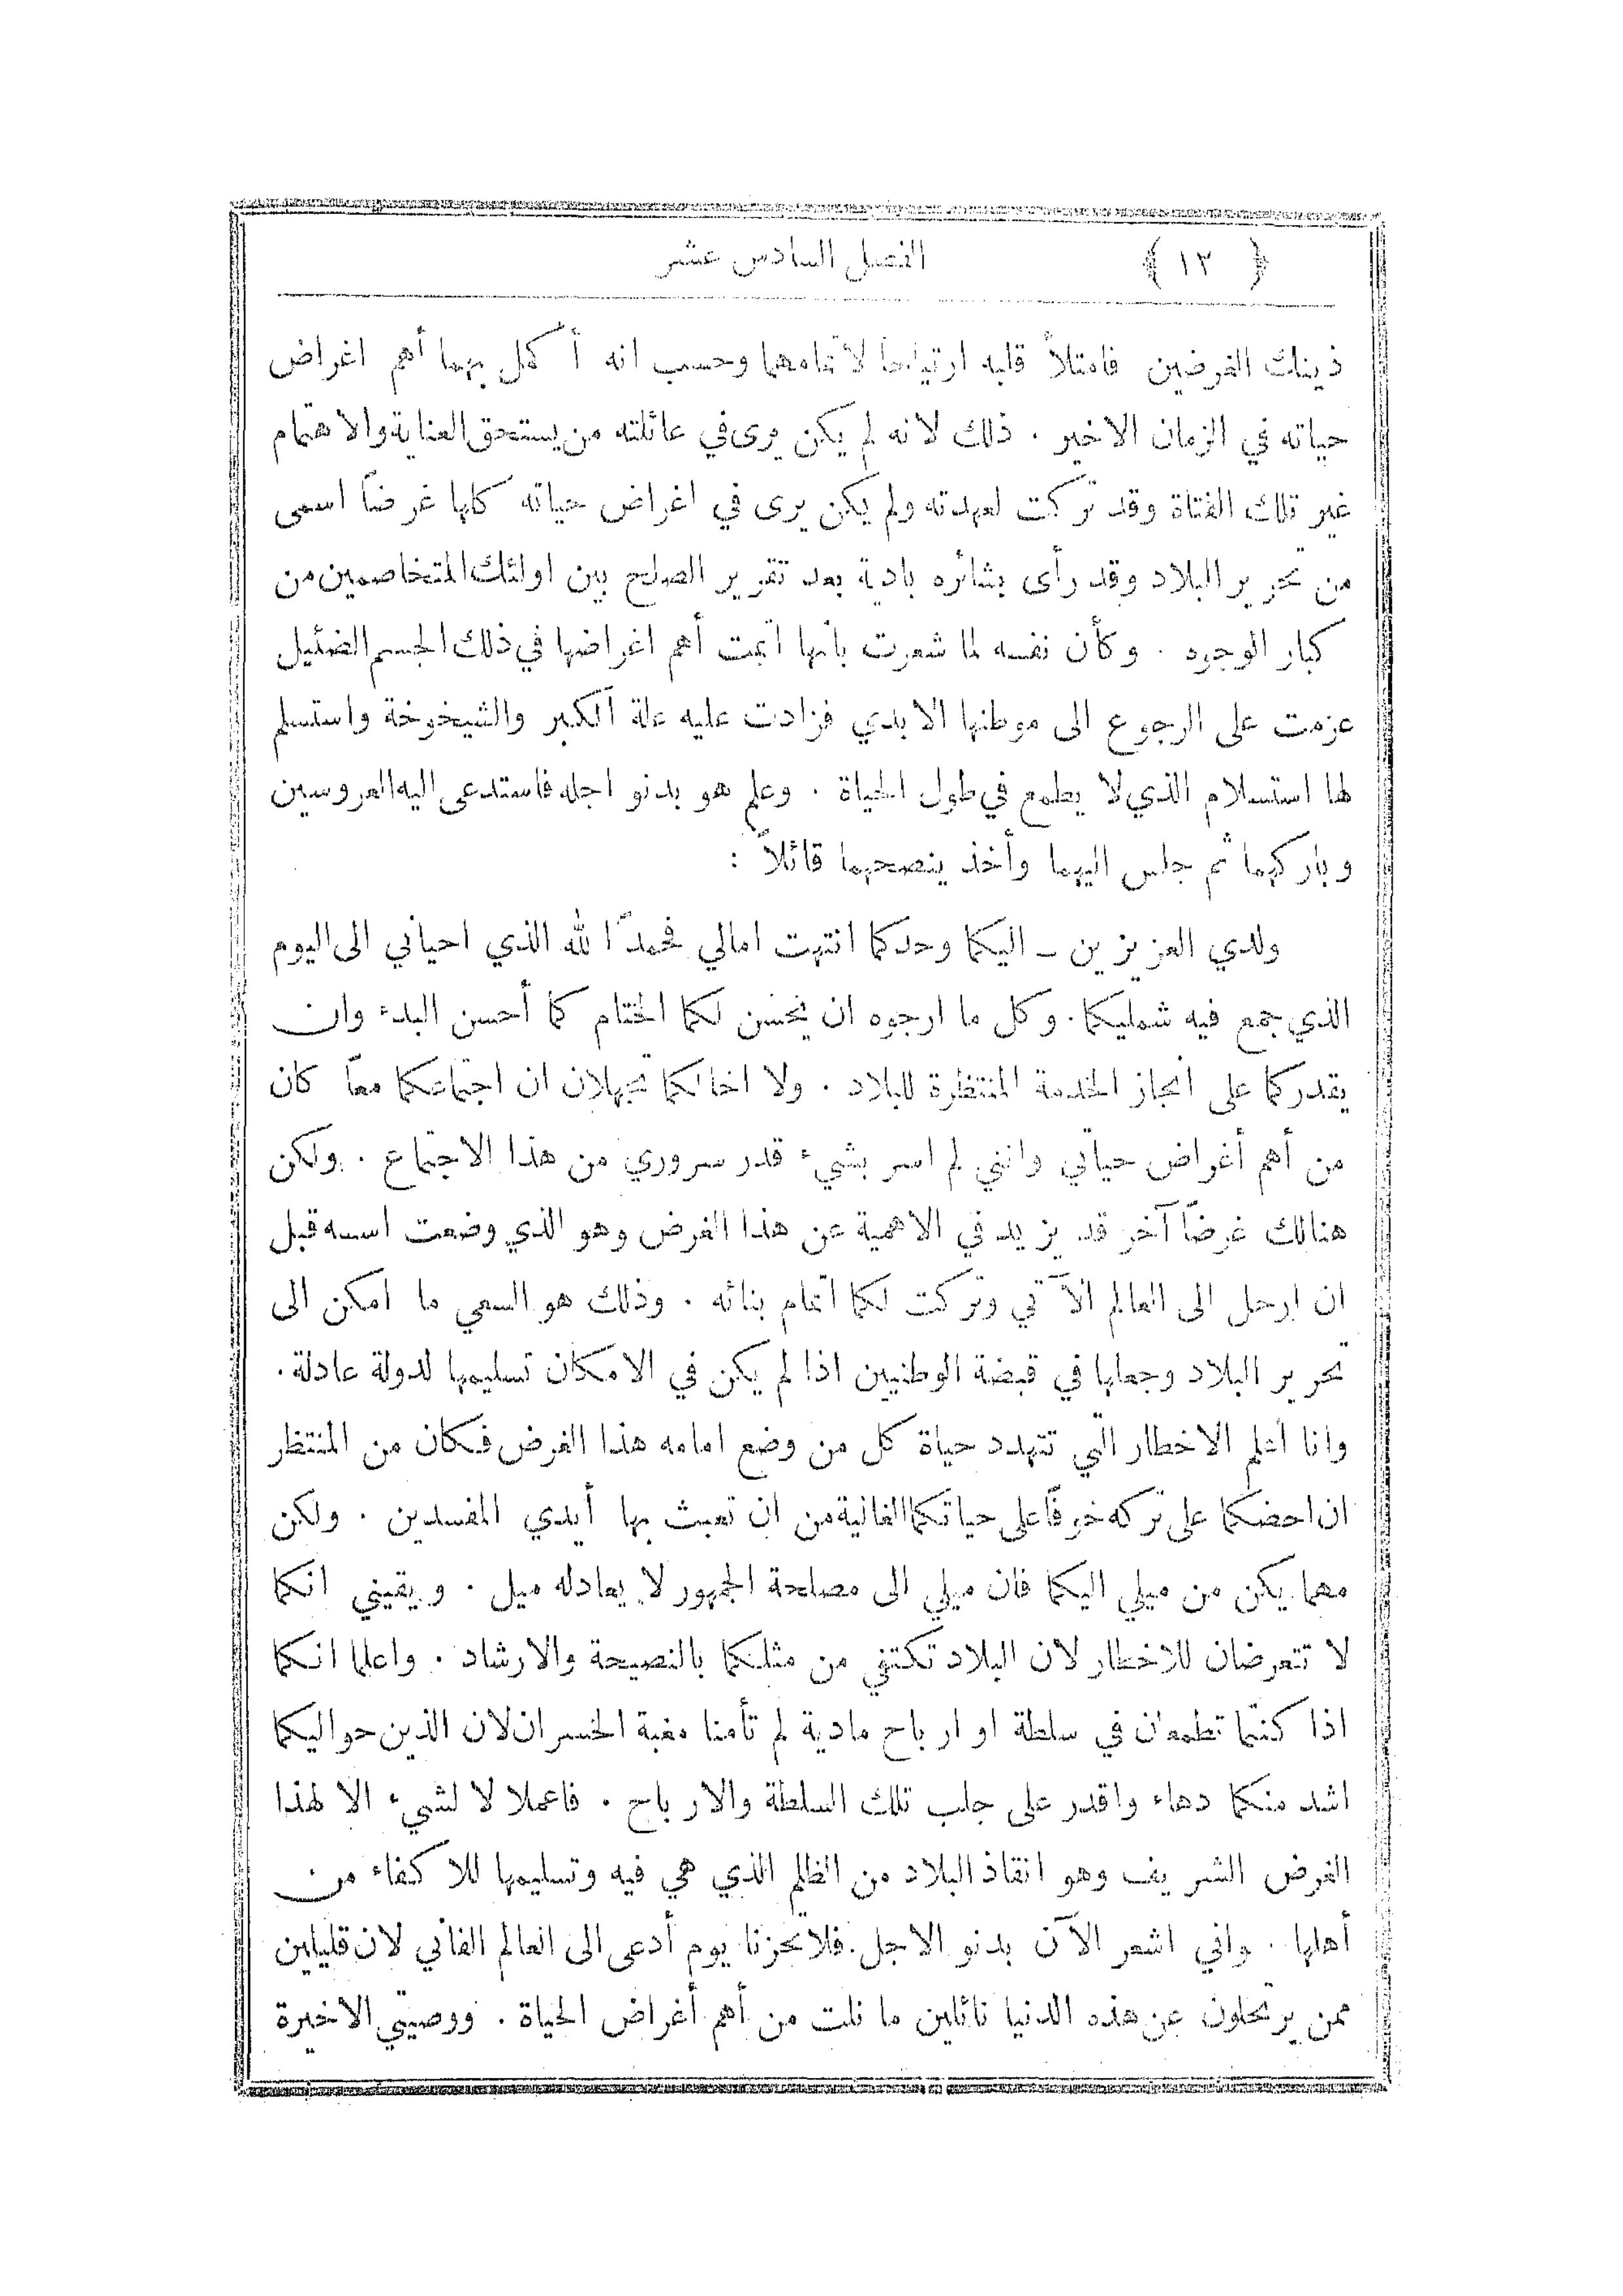 ﴿ ١٢ ﴾ الفصل السادس عشر
ذينك الغرضين فامتلأ قلبه ارتياحا لاتمامهما وحسب انه أكمل بهما أهم اغراض
حياته في الزمان الاخير . ذلك لانه لم يكن يرى في عائلته من يستحق العناية والاهتمام
غير تلك الفتاة وقد تركت لعهدته ولم يكن يرى في اغراض حياته كلها غرضاً اسمى
من تحرير البلاد وقد رأى بشائره بادية بعد تقرير الصلح بين اولئك المتخاصمين من
كبار الوجوه . وكأن نفسه لما شعرت بانها اتمت أهم اغراضها في ذلك الجسم الضئيل
عزمت على الرجوع الى موطنها الابدي فزادت عليه علة الكبر والشيخوخة واستسلم
لها استسلام الذي لا يطمع في طول الحياة . وعلم هو بدنو اجله فاستدعى اليه العروسين
وباركهما ثم جلس اليهما وأخذ ينصحهما قائلاً :
ولدي العزيزين ــ اليكما وحدكما انتهت امالي فحمداً لله الذي احياني الى اليوم
الذي جمع فيه شمليكما . وكل ما ارجوه ان يحسن لكما الختام كما أحسن البدء وان
يقدركما على انجاز الخدمة المنتظرة للبلاد . ولا اخالكما تجهلان ان اجتماعكما معاً كان
من أهم أغراض حياتي وانني لم اسر بشيء قدر سروري من هذا الاجتماع . ولكن
هنالك غرضاً آخر قد يزيد في الاهمية عن هذا الغرض وهو الذي وضعت اسسه قبل
ان ارحل الى العالم الآتي وتركت لكما اتمام بنائه . وذلك هو السعي ما امكن الى
تحرير البلاد وجعلها في قبضة الوطنيين اذا لم يكن في الامكان تسليمها لدولة عادلة .
وانا أعلم الاخطار التي تتهدد حياة كل من وضع امامه هذا الغرض فكان من المنتظر
ان احضكما على تركه خوفاً على حياتكما الغالية من ان تعبث بها أيدي المفسدين . ولكن
مهما يكن من ميلي اليكما فان ميلي الى مصلحة الجمهور لا يعادله ميل . ويقيني انكما
لا تتعرضان للاخطار لان البلاد تكتفي من مثلكما بالنصيحة والارشاد . واعلما انكما
اذا كنتما تطمعان في سلطة او ارباح مادية لم تأمنا مغبة الخسران لان الذين حواليكما
اشد منكما دهاء واقدر على جلب تلك السلطة والارباح . فاعملا لا لشيء الا لهذا
الغرض الشريف وهو انقاذ البلاد من الظلم الذي هي فيه وتسليمها للاكفاء من
أهلها . واني اشعر الآن بدنو الاجل . فلا تحزنا يوم أدعى الى العالم الفاني لان قليلين
ممن يرتحلون عن هذه الدنيا نائلين ما نلت من أهم أغراض الحياة . ووصيتي الاخيرة